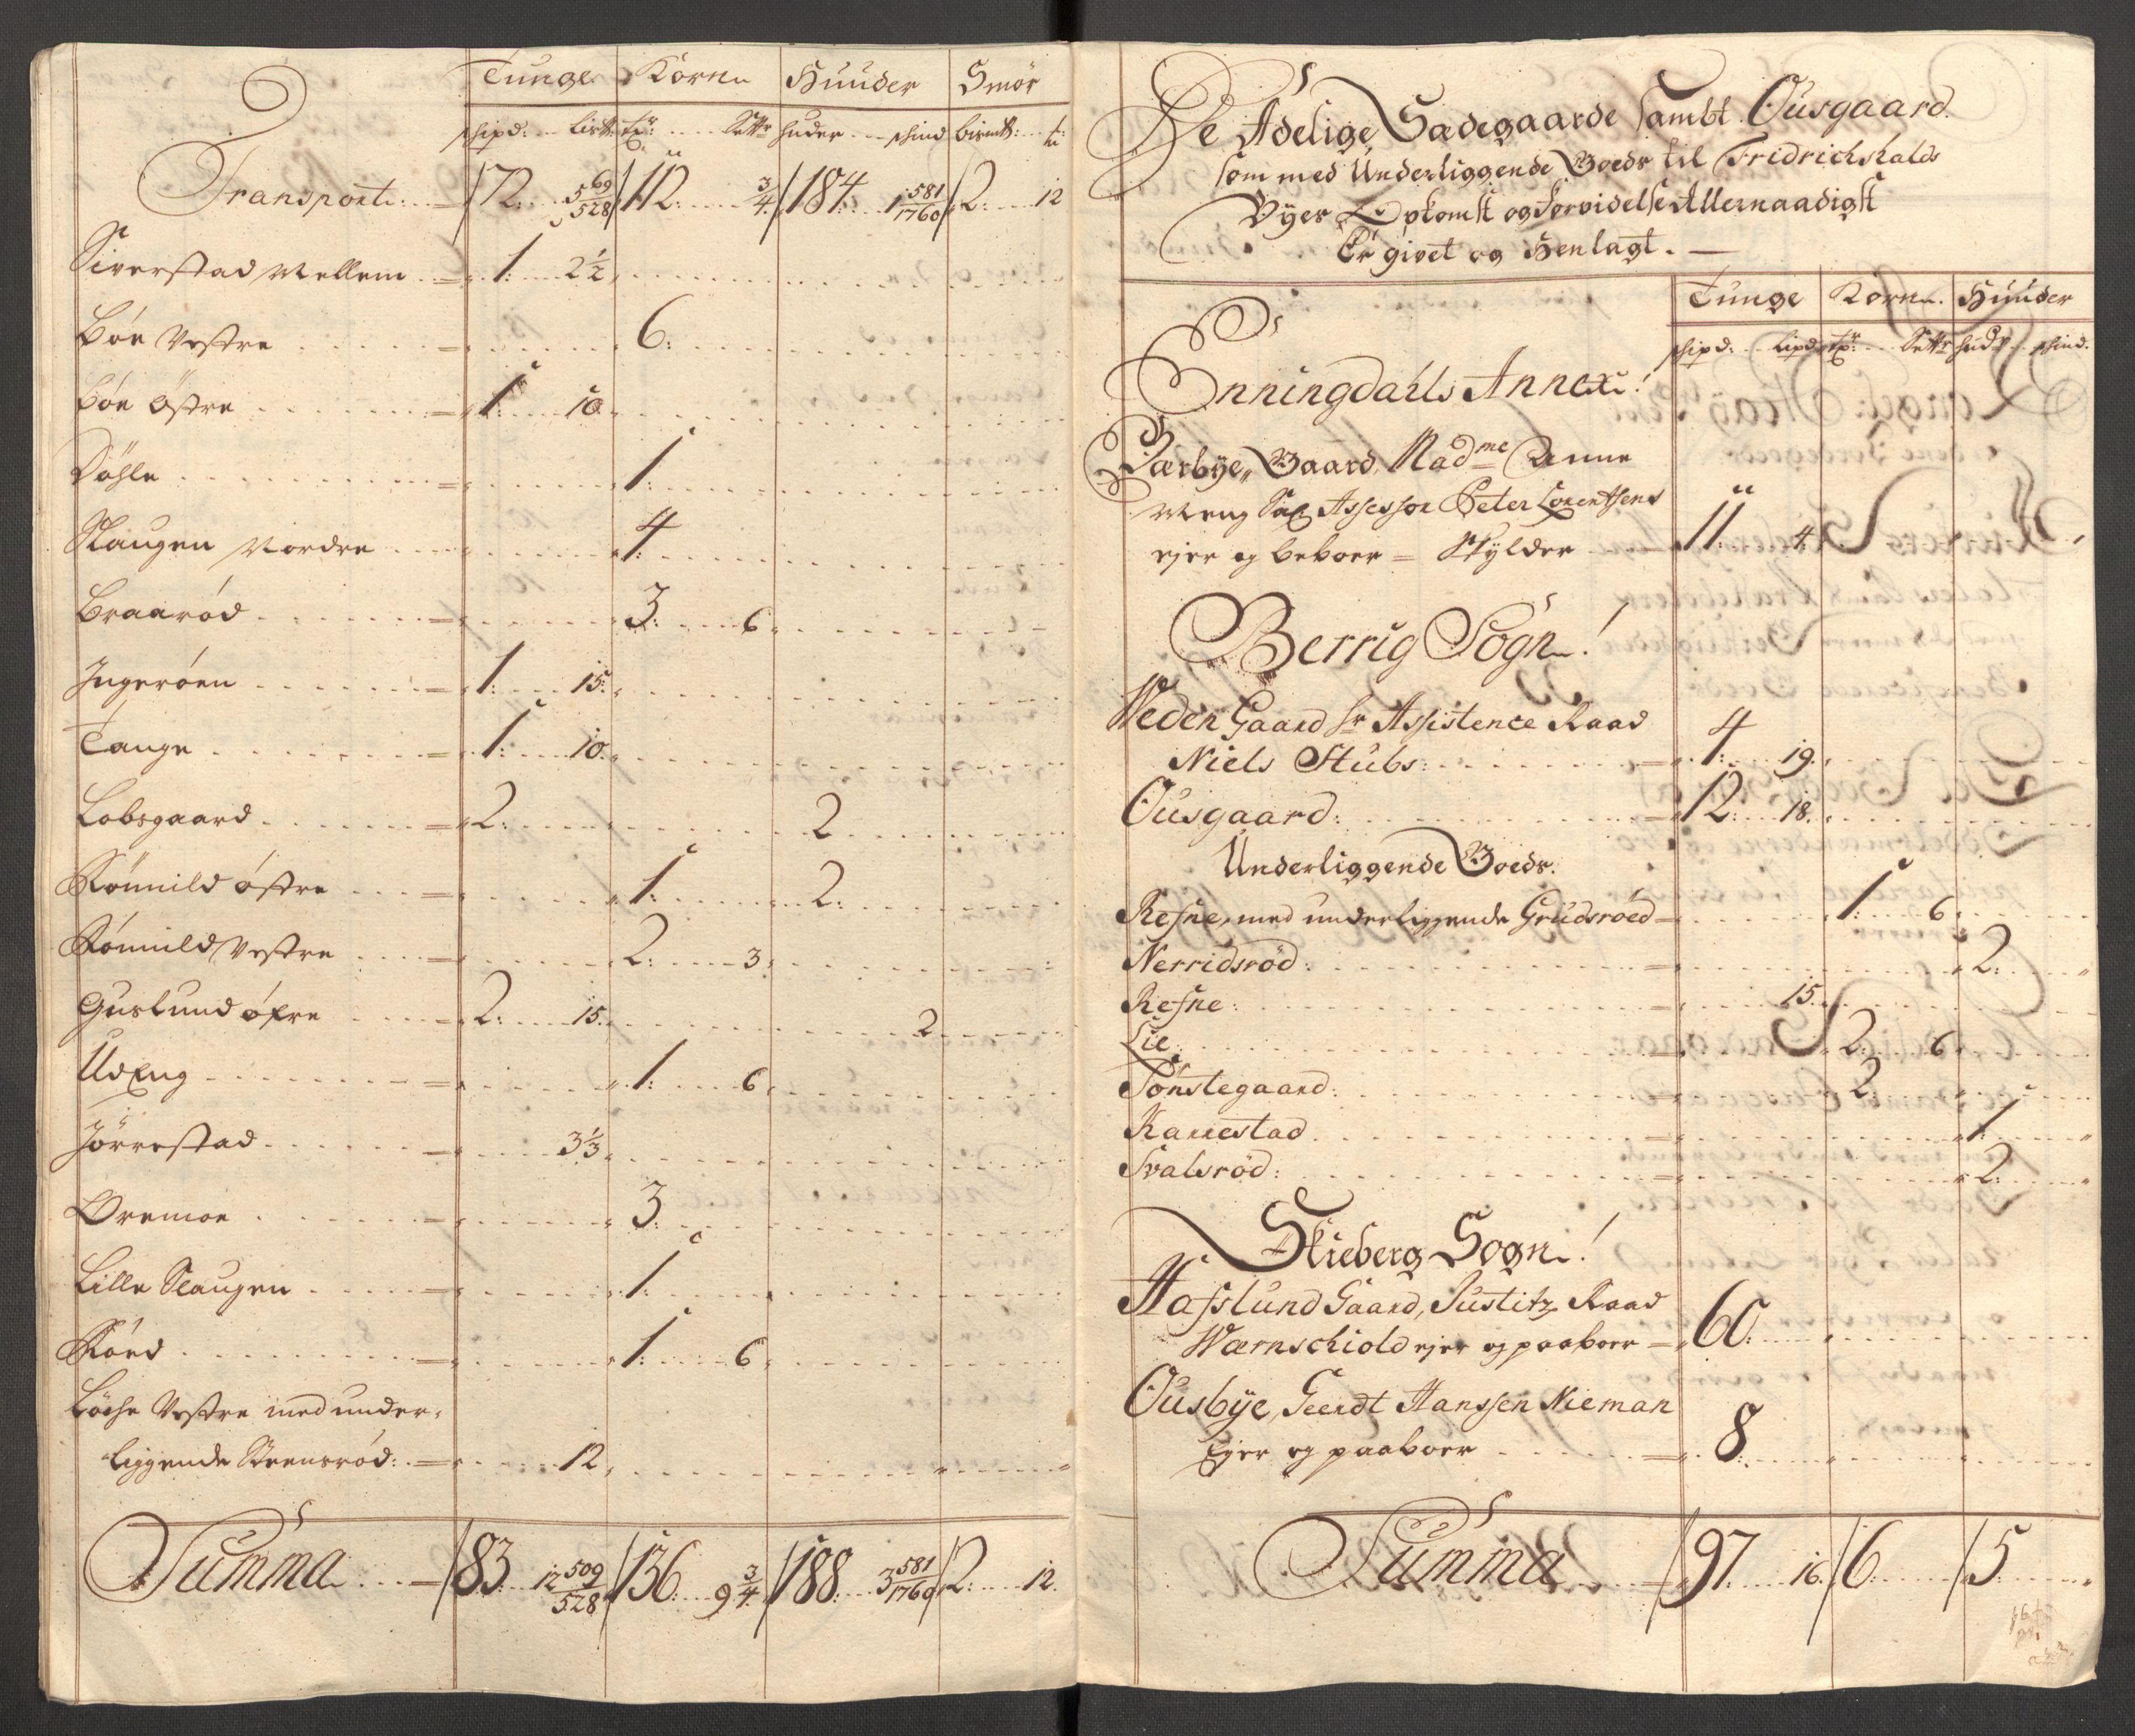 Tunge Korn Huuder Smör
schipd: Lis℔ tpr: Settr huder schind bism℔: ℔
Transport: 72: 5 69/528 112: 3/4 184: 1 581/1760 2: 12
Siverstad Mellem 1: 2 1/2
Böe Vestre 6:
Böe Östre 1: 10
Döhle 1:
Slaugen Nordre 4:
Braaröd 3: 6
Ingeröen 1: 15:
Tange 1: 10
Lobsgaard 2: 2
Römild östre 1: 2:
Römild Vestre 2: 3
Guslund öfre 2: 15. 2
UdEng 1: 6
Jörrestad 3 1/3
Oremoe 3:
Lille Slaugen 1:
Röed 1: 6
Löche Vestre med under-
liggende Steensröd: 12
Summa 83 12 509/528 136: 9 3/4 188: 3 581/1760 2: 12.
De Adelige Sædegaarde sambt Ousgaard.
som med Underliggende Goeds til Fridrichshalds
Byes Opkomst og Forvidelse Allernaadigst
Er givet og Henlagt.
Tunge Korn. Huuder
schipd: Lispd tpr: Settr hudr schind.
Enningdahls Annex:
Bærbye, Gaard, Madme Anna
Meng Sal Assessor Peter Lorentsens
ejer og beboer = Skylder 11: 4
Berrig Sogn:
Weden Gaard hr Assistence Raad
Niels Stubs: 4: 19.
Ousgaard: 12: 18.
Underliggende Goeds:
Resne, med underliggende Grudsröed 1: 6
Nerridsröd: 2:
Resne: 15.
Lie: 2: 6
Tonstegaard: 2:
Karrestad 1
Svalsröd: 2:
Skieberg Sogn:
Hafslund Gaard, Justitz Raad
Wærnschiold ejer og paaboer 60:
Ousbye, Geerdt Hanssen Nieman
Ejer og paaboer 8:
Summa 97: 16. 6 5: